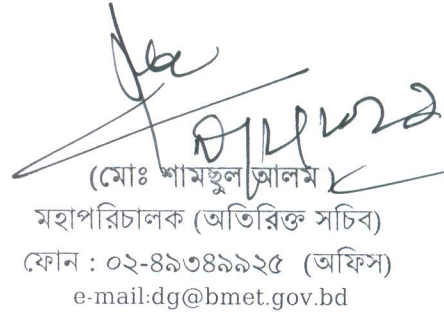 (মোঃ শামছুল আলম)
মহাপরিচালক (অতিরিক্ত সচিব)
ফোন : ০২-৪৯৩৪৯৯২৫ (অফিস)
e-mail:dg@bmet.gov.bd